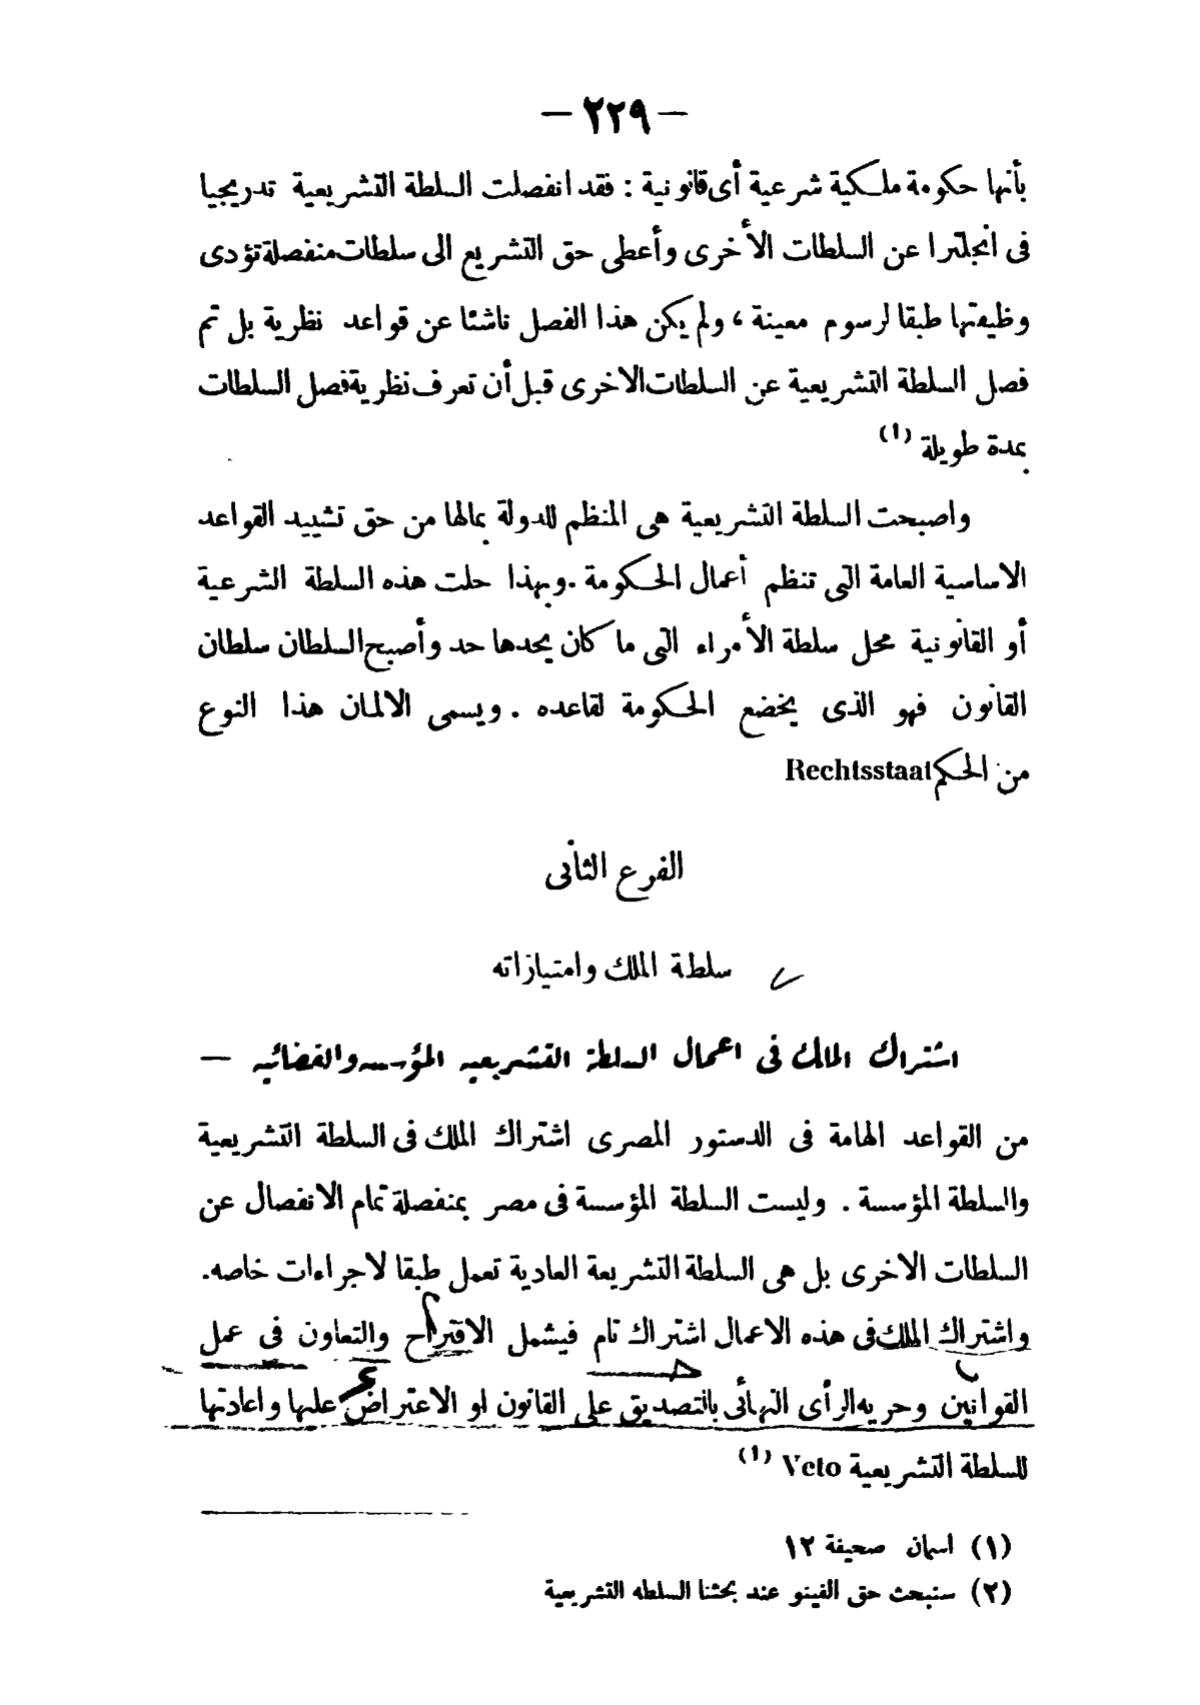 — ٢٢٩ —
بأنها حكومة ملكية شرعية أى قانونية : فقد انفصلت السلطة التشريعية تدريجيا
فى انجلترا عن السلطات الأخرى وأعطى حق التشريع الى سلطات منفصلة تؤدى
وظيفتها طبقا لرسوم معينة ، ولم يكن هذا الفصل ناشئا عن قواعد نظرية بل تم
فصل السلطة التشريعية عن السلطات الاخرى قبل أن تعرف نظرية فصل السلطات
بمدة طويلة (١)
واصبحت السلطة التشريعية هى المنظم للدولة بمالها من حق تشييد القواعد
الاساسية العامة التى تنظم أعمال الحكومة . وبهذا حلت هذه السلطة الشرعية
أو القانونية محل سلطة الأمراء التى ما كان يحدها حد وأصبح السلطان سلطان
القانون فهو الذى يخضع الحكومة لقاعده . ويسمى الالمان هذا النوع
من الحكم Rechtsstaat
الفرع الثانى
سلطة الملك وامتيازاته
اشتراك الملك فى اعمال السلطة التشريعيه المؤسسه والقضائيه —
من القواعد الهامة فى الدستور المصرى اشتراك الملك فى السلطة التشريعية
والسلطة المؤسسة . وليست السلطة المؤسسة فى مصر بمنفصلة تمام الانفصال عن
السلطات الاخرى بل هى السلطة التشريعة العادية تعمل طبقا لاجراءات خاصه .
واشتراك الملك فى هذه الاعمال اشتراك تام فيشمل الاقتراح والتعاون فى عمل
القوانين وحريه الرأى النهائى بالتصديق على القانون او الاعتراض عليها واعادتها
للسلطة التشريعية Veto (١)
(١) اسمان صحيفة ١٢
(٢) سنبحث حق الفيتو عند بحثنا السلطه التشريعية